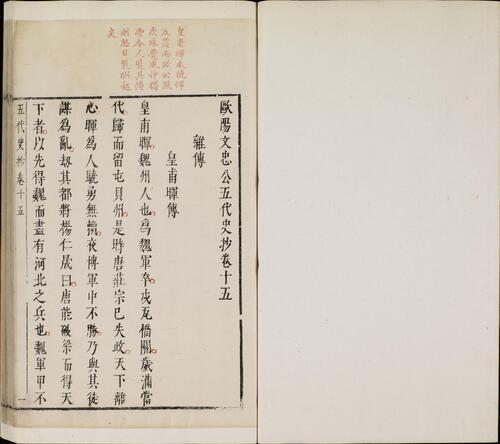 皇甫暉本驍悍
反覆而歐公點
次殊覺風神獨
令人覽其傳
目裂起
矣
歐陽文忠公五代史抄卷十五
雜傳
皇甫暉傳
皇甫暉魏州人也。爲魏軍卒。戍瓦橋關。歲滿當
代歸而留屯貝州。是時唐莊宗已失政。天下離
心。暉爲人驍勇無賴。夜博軍中不勝。乃與其徒
謀爲亂。刼其都將楊仁晟曰。唐能破梁而得天
下者。以先得魏而盡有河北之兵也。魏軍甲不
五代史抄卷十五 一